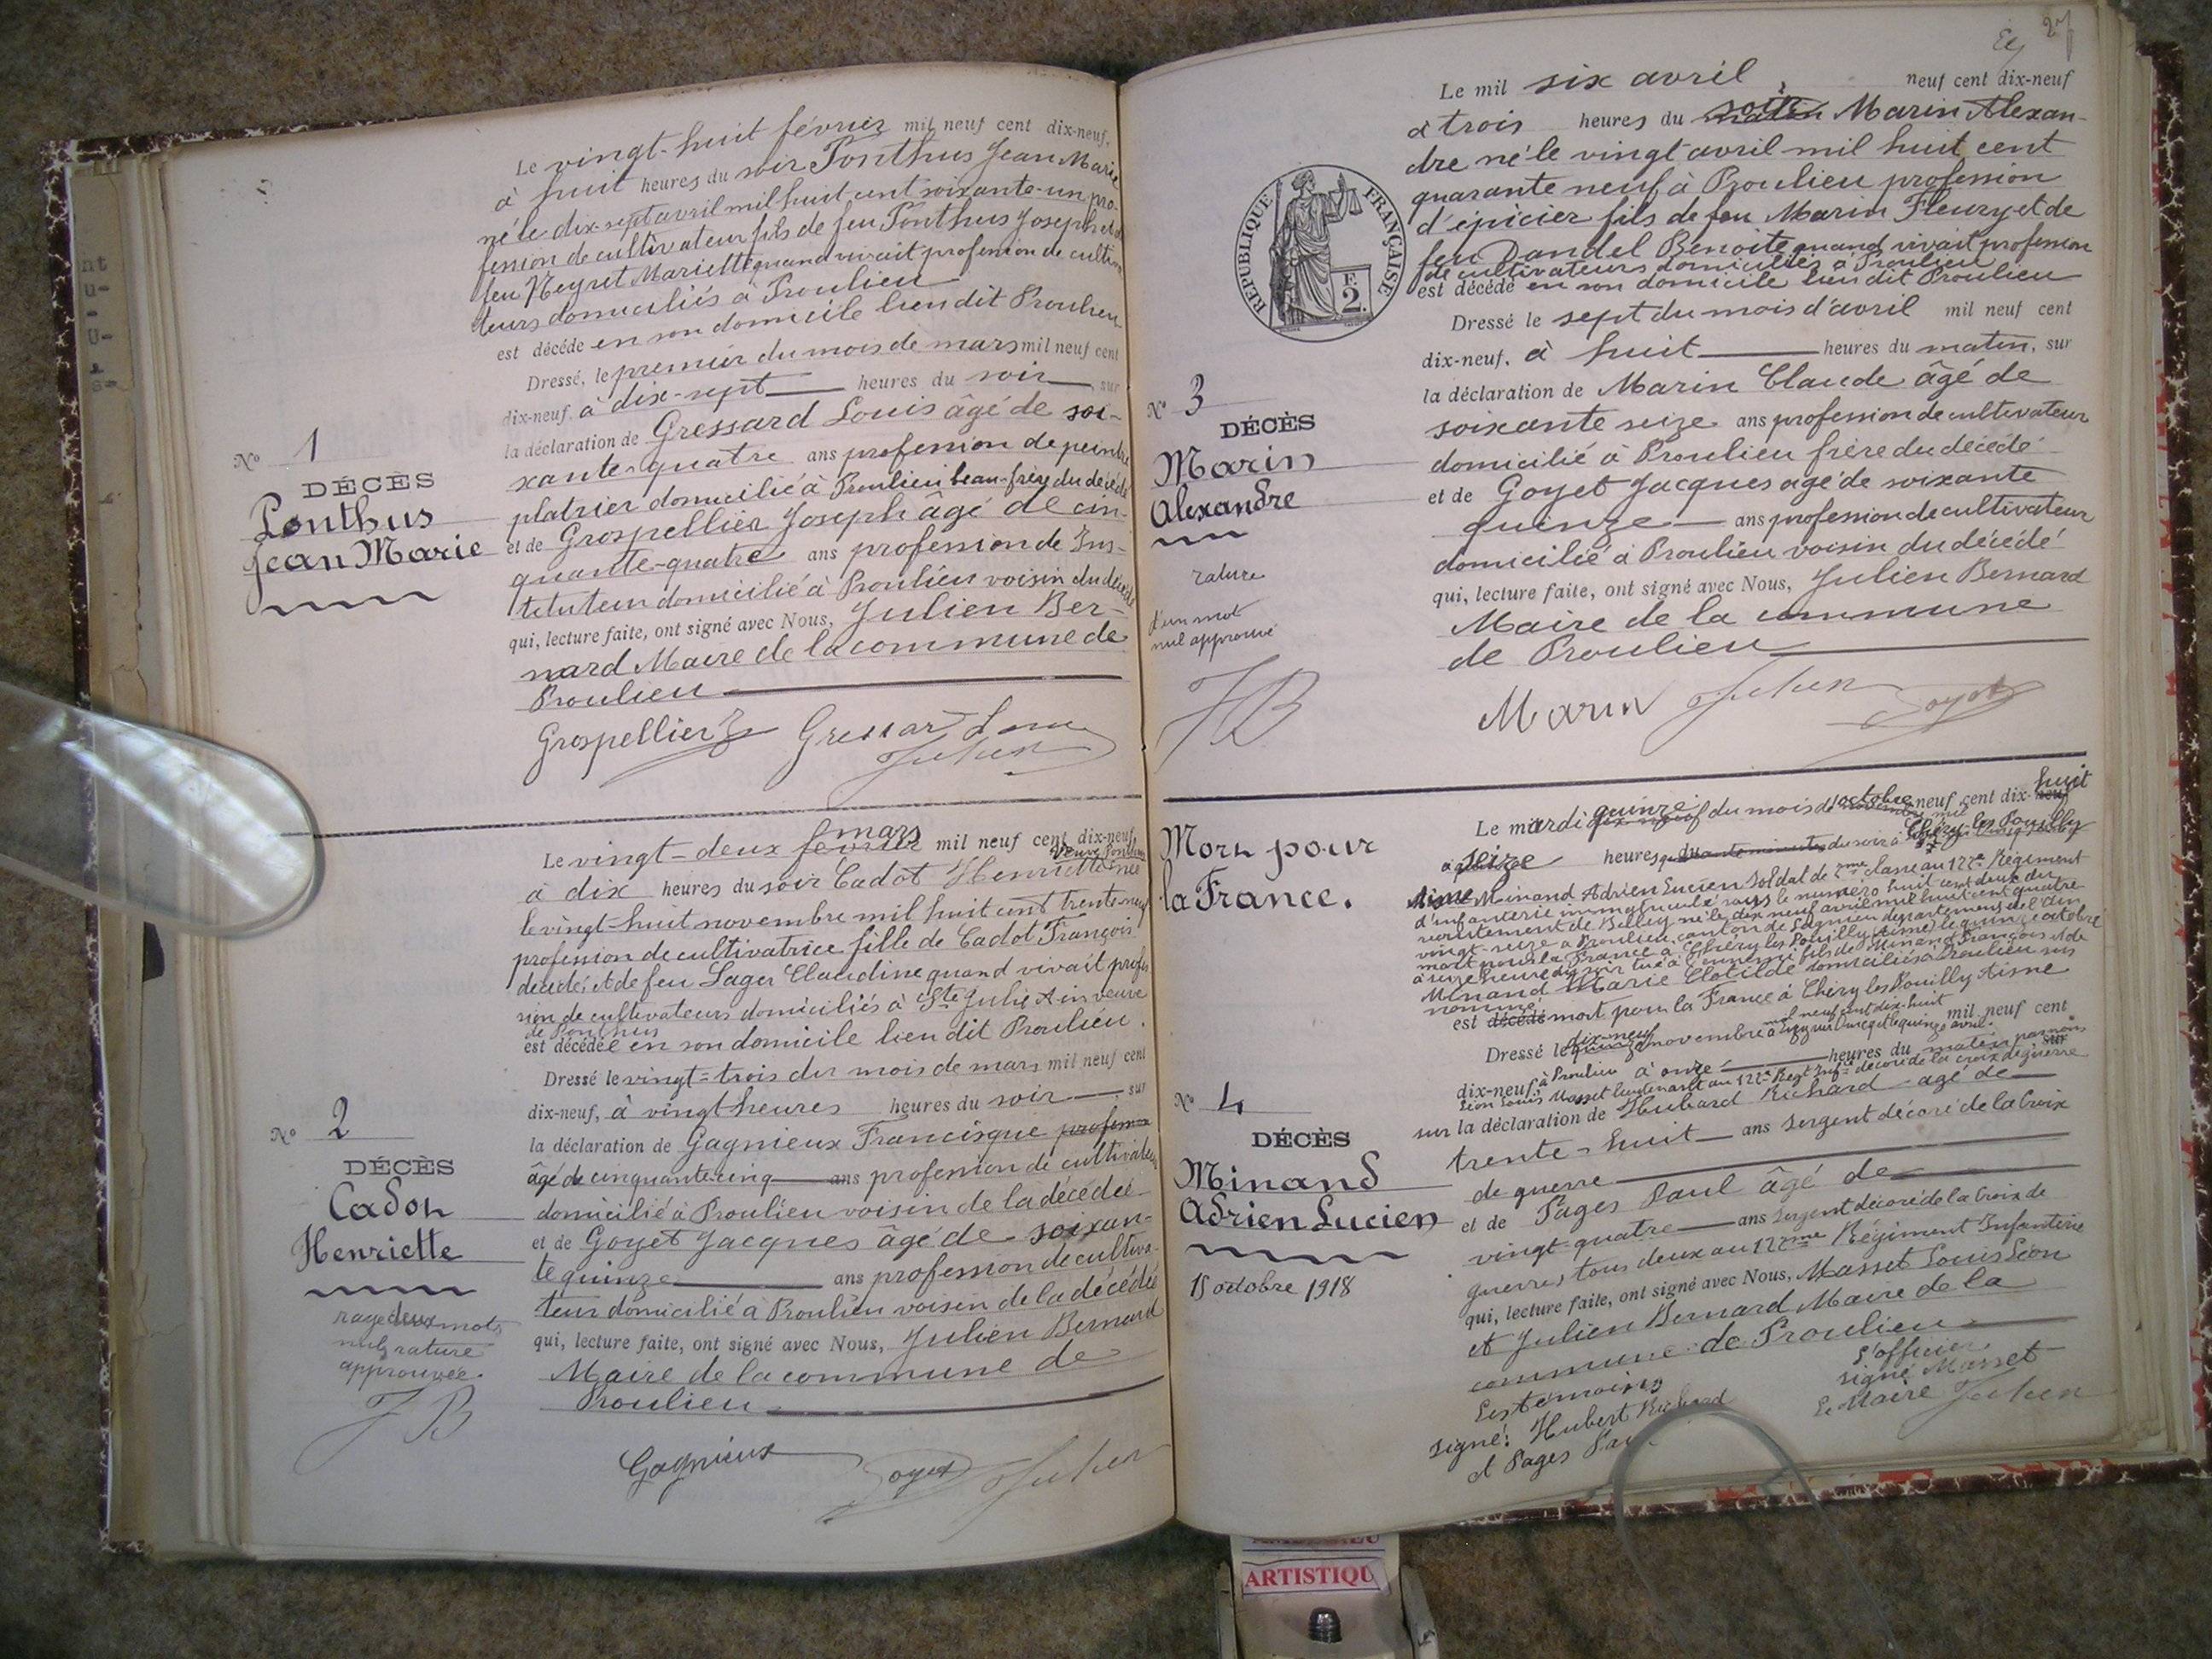 Le vingt-huit février mil neuf cent dix-neuf,
à huit heures du soir Ponthus Jean Marie
né le dix-sept avril mil huit cent soixante-un pro-
fession de cultivateur fils de feu Ponthus Joseph et de
feu Neyret Mariette quand vivait profession de cultiva
teurs domiciliés à Proulieu
est décédé en son domicile lieu dit Proulieu
Dressé, le premier du mois de mars mil neuf cent
dix-neuf, à dix-sept heures du soir, sur
la déclaration de Gressard Louis âgé de soi-
xante-quatre ans profession de peintre
platrier domicilié à Proulieu beau-frère du décédé
et de Grospellier Joseph âgé de cin-
quante-quatre ans profession de Ins-
tituteur domicilié à Proulieu voisin du décédé
qui, lecture faite, ont signé avec Nous, Julien Ber-
nard Maire de la commune de
Proulieu
Grospellier Gressard Louis
Julien
N° 1
DÉCÈS
Ponthus
Jean Marie
mars
Le vingt-deux février mil neuf cent dix-neuf,
veuve Ponthus
à dix heures du soir Cadot Henriette née
le vingt-huit novembre mil huit cent trente-neuf
profession de cultivatrice fille de Cadot François
décédé, et de feu Lager Claudine quand vivait profes
sion de cultivateurs domiciliés à Ste Julie Ain veuve
de Ponthus
est décédée en son domicile lieu dit Proulieu.
Dressé le vingt-trois du mois de mars mil neuf cent
dix-neuf, à vingt heures heures du soir, sur
la déclaration de Gagnieux Francisque profession
âgé de cinquante-cinq ans profession de cultivateur
domicilié à Proulieu voisin de la décédée
et de Goyet Jacques âgé de soixan-
te quinze ans profession de cultiva-
teur domicilié à Proulieu voisin de la décédée
qui, lecture faite, ont signé avec Nous, Julien Bernard
Maire de la commune de
Proulieu
Gagnieux Goyet Julien
N° 2
DÉCÈS
Cadot
Henriette
rayé deux mots
nuls rature
approuvée.
JB
27
Le mil six avril neuf cent dix-neuf
soir
à trois heures du matin Marin Alexan-
dre né le vingt avril mil huit cent
quarante neuf à Proulieu profession
d'épicier fils de feu Marin Fleury et de
feu Dandel Benoite quand vivait profession
de cultivateurs domiciliés à Proulieu
est décédé en son domicile lieu dit Proulieu
Dressé le sept du mois d'avril mil neuf cent
dix-neuf, à huit heures du matin, sur
la déclaration de Marin Claude âgé de
soixante seize ans profession de cultivateur
domicilié à Proulieu frère du décédé
et de Goyet Jacques âgé de soixante
quinze ans profession de cultivateur
domicilié à Proulieu voisin du décédé
qui, lecture faite, ont signé avec Nous, Julien Bernard
Maire de la commune
de Proulieu
Marin Julien Goyet
RÉPUBLIQUE FRANÇAISE
E
2.
N° 3
DÉCÈS
Marin
Alexandre
rature
d'un mot
nul approuvé
JB
Mort pour
la France.
N° 4
DÉCÈS
Minand
Adrien Lucien
15 octobre 1918
quinze octobre huit
Le mardi du mois d' neuf cent dix-neuf
à seize heures du soir à Chéry les Pouilly
Aisne Minand Adrien Lucien Soldat de 2me classe au 172e Régiment
d'infanterie immatriculé sous le numéro huit cent deux du
recrutement de Belley né le dix neuf avril mil huit cent quatre
vingt-seize à Proulieu, canton de Lagnieu département de l'Ain
mort pour la France à Chéry les Pouilly (Aisne) le quinze octobre
à seize heures du soir tué à l'ennemi fils de Minand François et de
Minand Marie Clotilde domiciliés à Proulieu sus
nommé
est décédé mort pour la France à Chéry les Pouilly Aisne
mil neuf cent dix-huit
dix-neuf
Dressé le quinze novembre à le quinze avril mil neuf cent
dix-neuf, à Proulieu à onze heures du matin par nous
Léon Louis Masset lieutenant au 172e Regt Infie décoré de la croix de guerre
sur la déclaration de Hubard Richard âgé de
trente-huit ans Sergent décoré de la Croix
de guerre
et de Pages Paul âgé de
vingt-quatre ans Sergent décoré de la Croix de
guerre, tous deux au 172eme Régiment Infanterie
qui, lecture faite, ont signé avec Nous, Masset Louis Léon
et Julien Bernard Maire de la
commune de Proulieu
Les témoins L'officier
signé: Hubert Richard signé Masset
et Pages Paul Le Maire Julien
ARTISTIQU